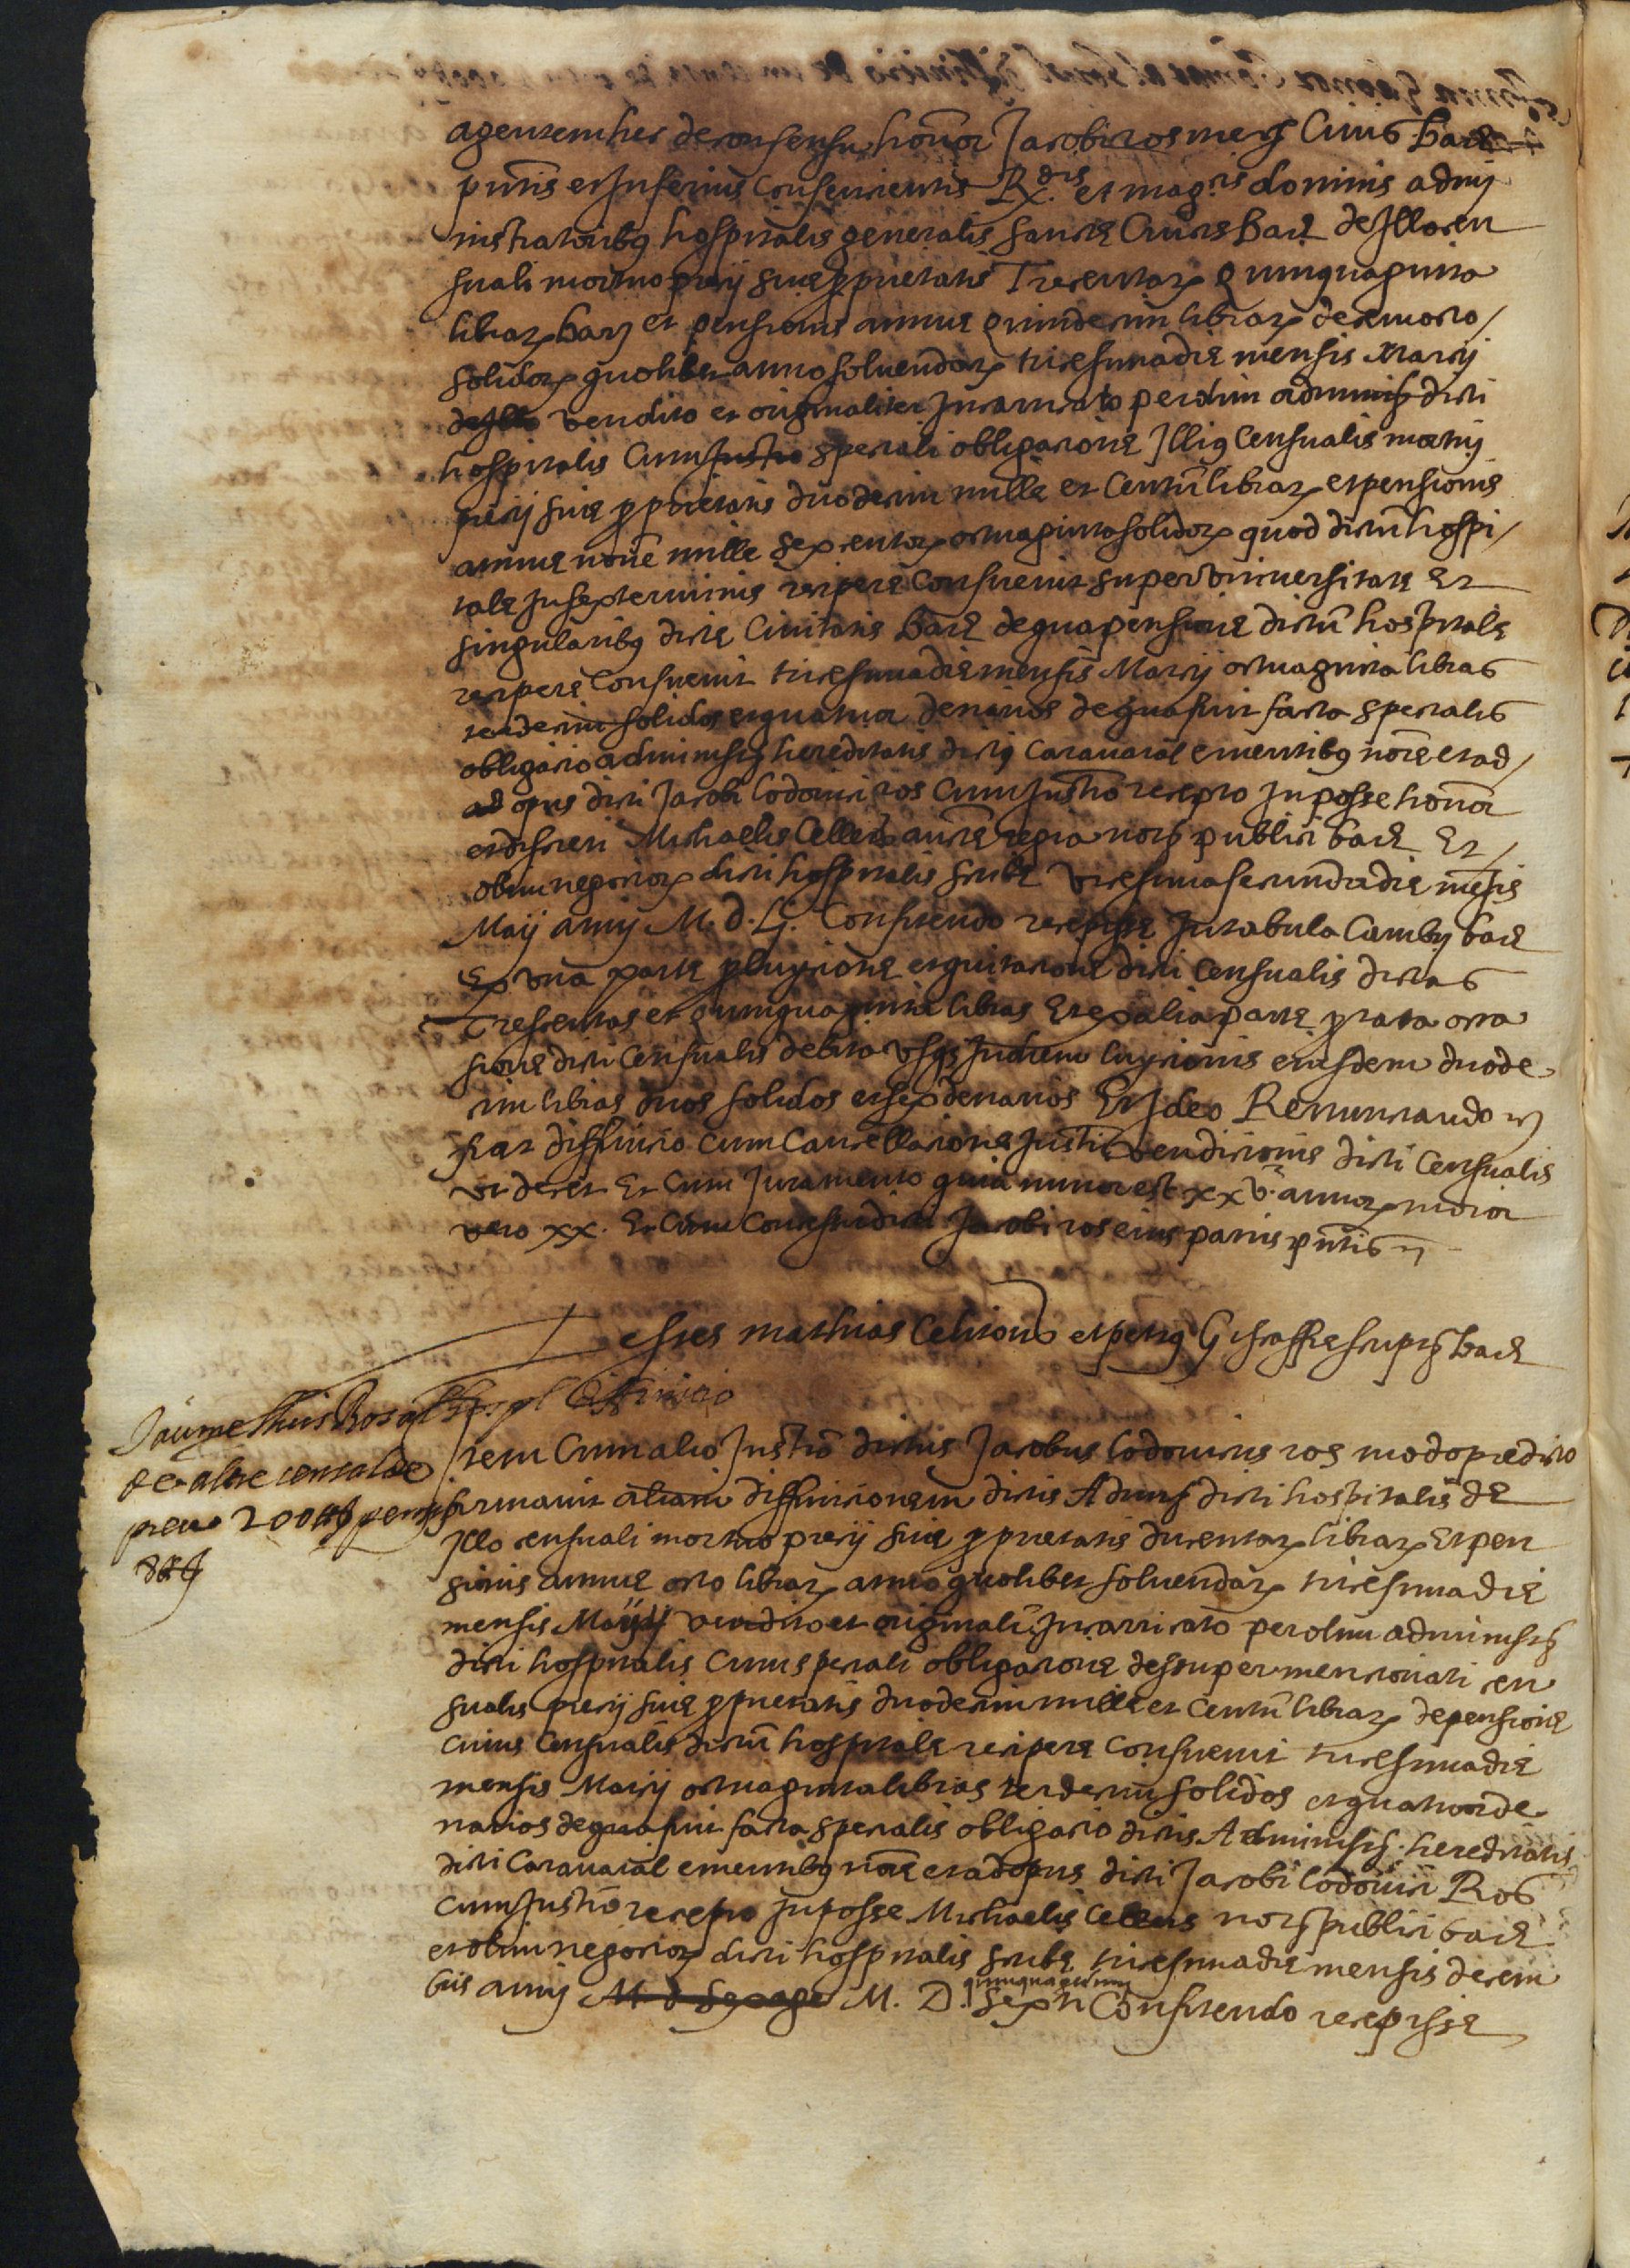 agentem hec de consensu honor Jacobi ros merc Civis Barc
pntis et Inferius Consentientis Rx.dis et mag.cis dominis admi
nistratoribus hospitalis generalis sancte Crucis Barc de Illo cen
suali mortuo precij sive pprietatis Trecentar Quinquaginta
librar barc et pensionis annue Quindecim librar decemocto
solidor quolibet anno solvendor tricesima die mensis Marcij
vendito et originaliter Incarricato per olim administ dicti
hospitalis Cum speciali obligacione Illius Censualis mortuj
precij sive pprietatis duodecim mille et Centum librar et pensionis
annue novem mille sexcentor octuaginta solidor quod dictum hospi
tale In sex terminis recipere Consuevit super universitate Et
singularibus dicte Civitatis Barc de qua pensione dictum hospitale
recipere Consuevit tricesima die mensis Marcij octuaginta libras
terdecim solidos et quatuor denarios de qua fuit facta specialis
obligacio administ hereditatis dicti Caravacal ementibus nore et ad
ad opus dicti Jacobi lodovici ros Cum Instro recepto In posse honor
et discreti Michaelis Cellers aucte regia notr publici barc Et
olim negocior dicti hospitalis scribe vicesima secunda die mesis
Maij anij M. d. Lj. Confitendo recepisse In tabula Cambij barc
Ex una parte p luycione et quitacione dicti Censualis dictas
Trescentas et quinquaginta libras Et ex alia parte p rata octa
sione dicti Censualis debita usqs In diem luycionis eiusdem duode
cim libras duos solidos et sex denarios Et Ideo Renunciando etc
fiat diffinicio cum Cancellacione Instri vendicionis dicti Censualis
ut decet Et Cum Juramento quia minor est xxv. annor maior
vero xx. Et Cum Consensu dicti Jacobi ros eius patris pntis etc
Testes mathias Celrion et petrus G scriptr barc
Jaume lluis Ros al Hospl diffinicio
de altre censal de
preu 200 ll
Item Cum alio Instro dictus Jacobus lodovicus ros modo predicto
firmavit aliam diffinicionem dictis Admist dicti hospitalis de
Illo censuali mortuo precij sive pprietatis ducentar librar Et pen
sionis annue octo librar anno quolibet solvendar tricesima die
mensis vendito et originalr Incarricato per olim administr
dicti hospitalis Cum speciali obligacione desuper mencionati cen
sualis precij sive pprietatis duodecim mille et Centum librar de pensione
cuius Censualis dictum hospitale recipere Consuevit tricesima die
mensis Marcij octuaginta libras terdecim solidos et quatuor de
narios de qua fuit facta specialis obligacio dictis Administr. hereditatis
dicti Caravacal ementibus nore et ad opus dicti Jacobi lodovici Ros
Cum Instro recepto In posse Michaelis Cellers notr publici barc
et olim negocior dicti hospitalis scribe tricesima die mensis decem
bris anij M. D. quinquagesimo Sexto Confitendo recepisse